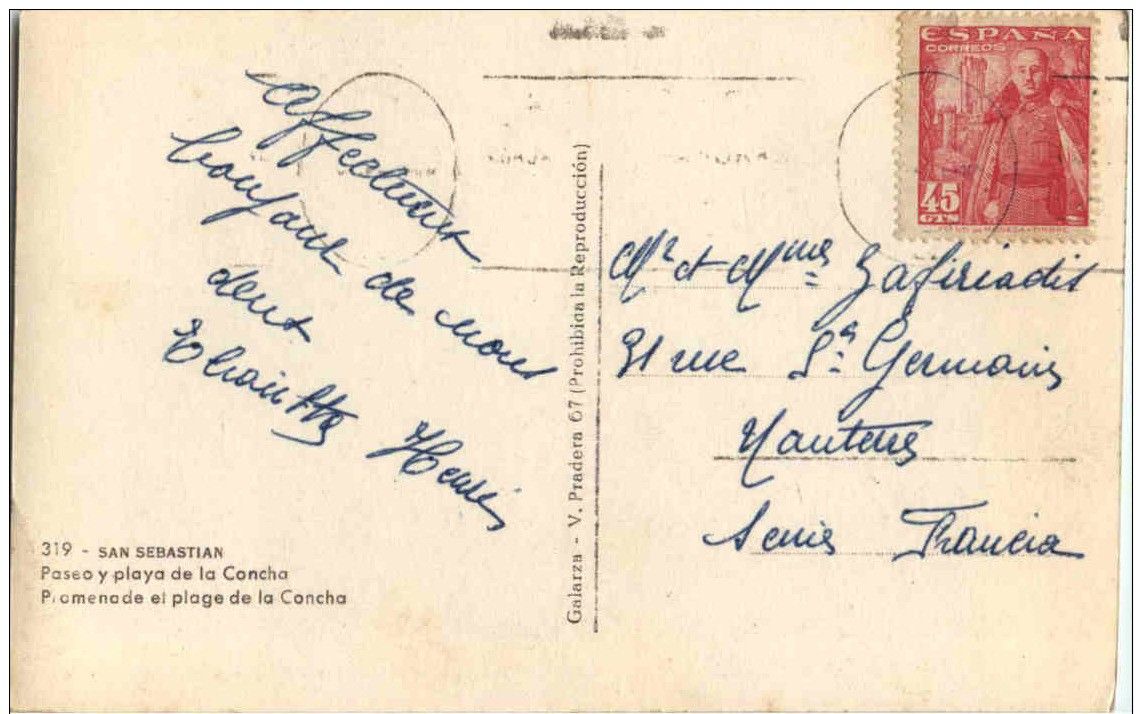 Affectueux
de nous
deux
Henri
319 - SAN SEBASTIAN
Paseo y playa de la Concha
Promenade et plage de la Concha
Galarza - V. Pradera 67 (Prohibida la Reproducción)
ESPAÑA
CORREOS
45
CTS
Mr et Mme Zafiriadis
31 rue St Germain
Nanterre
Seine Francia